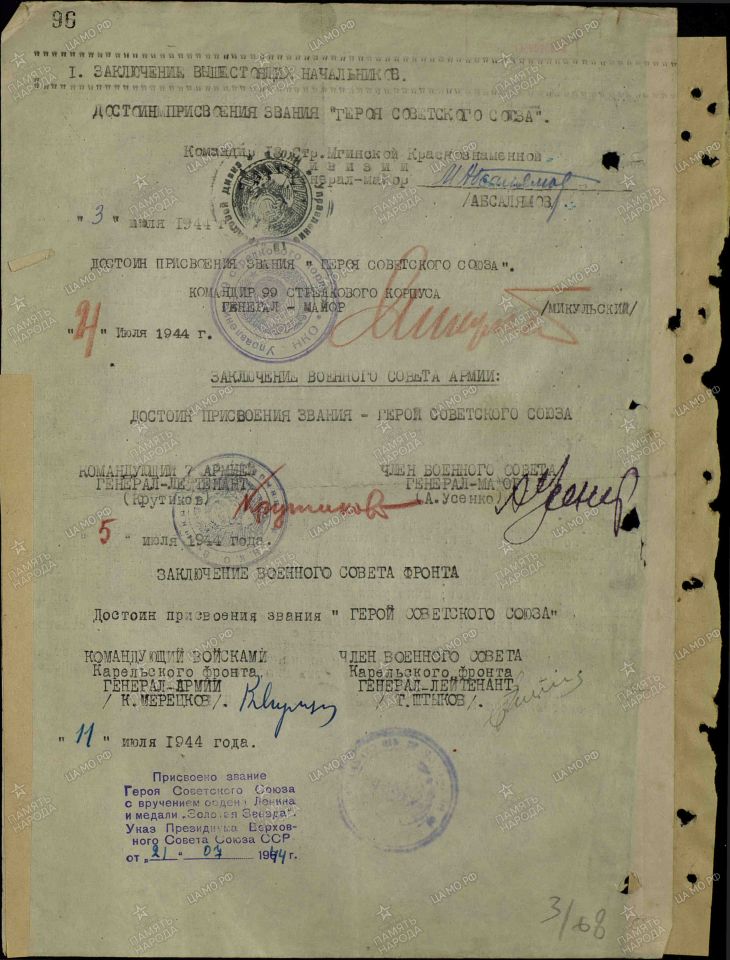 96
I. ЗАКЛЮЧЕНИЕ ВЫШЕСТОЯЩИХ НАЧАЛЬНИКОВ.
ДОСТОИН ПРИСВОЕНИЯ ЗВАНИЯ "ГЕРОЯ СОВЕТСКОГО СОЮЗА".
Командир Стр.Мгинской Краснознаменной
ивизии
енерал-майор
/АБСАЛЯМОВ/
"3" июля 1944 г
ДОСТОИН ПРИСВОЕНИЯ ЗВАНИЯ " ГЕРОЯ СОВЕТСКОГО СОЮЗА".
КОМАНДИР 99 СТРЕЛКОВОГО КОРПУСА
ГЕНЕРАЛ - МАЙОР /МИКУЛЬСКИЙ/
"4" Июля 1944 г.
ЗАКЛЮЧЕНИЕ ВОЕННОГО СОВЕТА АРМИИ:
ДОСТОИН ПРИСВОЕНИЯ ЗВАНИЯ - ГЕРОЙ СОВЕТСКОГО СОЮЗА
КОМАНДУЮЩИЙ 7 АРМИЕЙ ЧЛЕН ВОЕННОГО СОВЕТА
ГЕНЕРАЛ-ЛЕЙТЕНАНТ ГЕНЕРАЛ-МАЙОР
(Крутиков) Крутиков (А.Усенко)
"5" июля 1944 года.
ЗАКЛЮЧЕНИЕ ВОЕННОГО СОВЕТА ФРОНТА
Достоин присвоения звания " ГЕРОЙ СОВЕТСКОГО СОЮЗА"
КОМАНДУЮЩИЙ ВОЙСКАМИ ЧЛЕН ВОЕННОГО СОВЕТА
Карельского фронта Карельского фронта
ГЕНЕРАЛ-АРМИИ ГЕНЕРАЛ-ЛЕЙТЕНАНТ
/ К.МЕРЕЦКОВ/. /Т.ШТЫКОВ/.
"11" июля 1944 года.
Присвоено звание
Героя Советского Союза
с вручением ордена Ленина
и медали „Золотая Звезда".
Указ Президиума Верхов-
ного Совета Союза ССР
от „21" 07 1944 г.
3/68